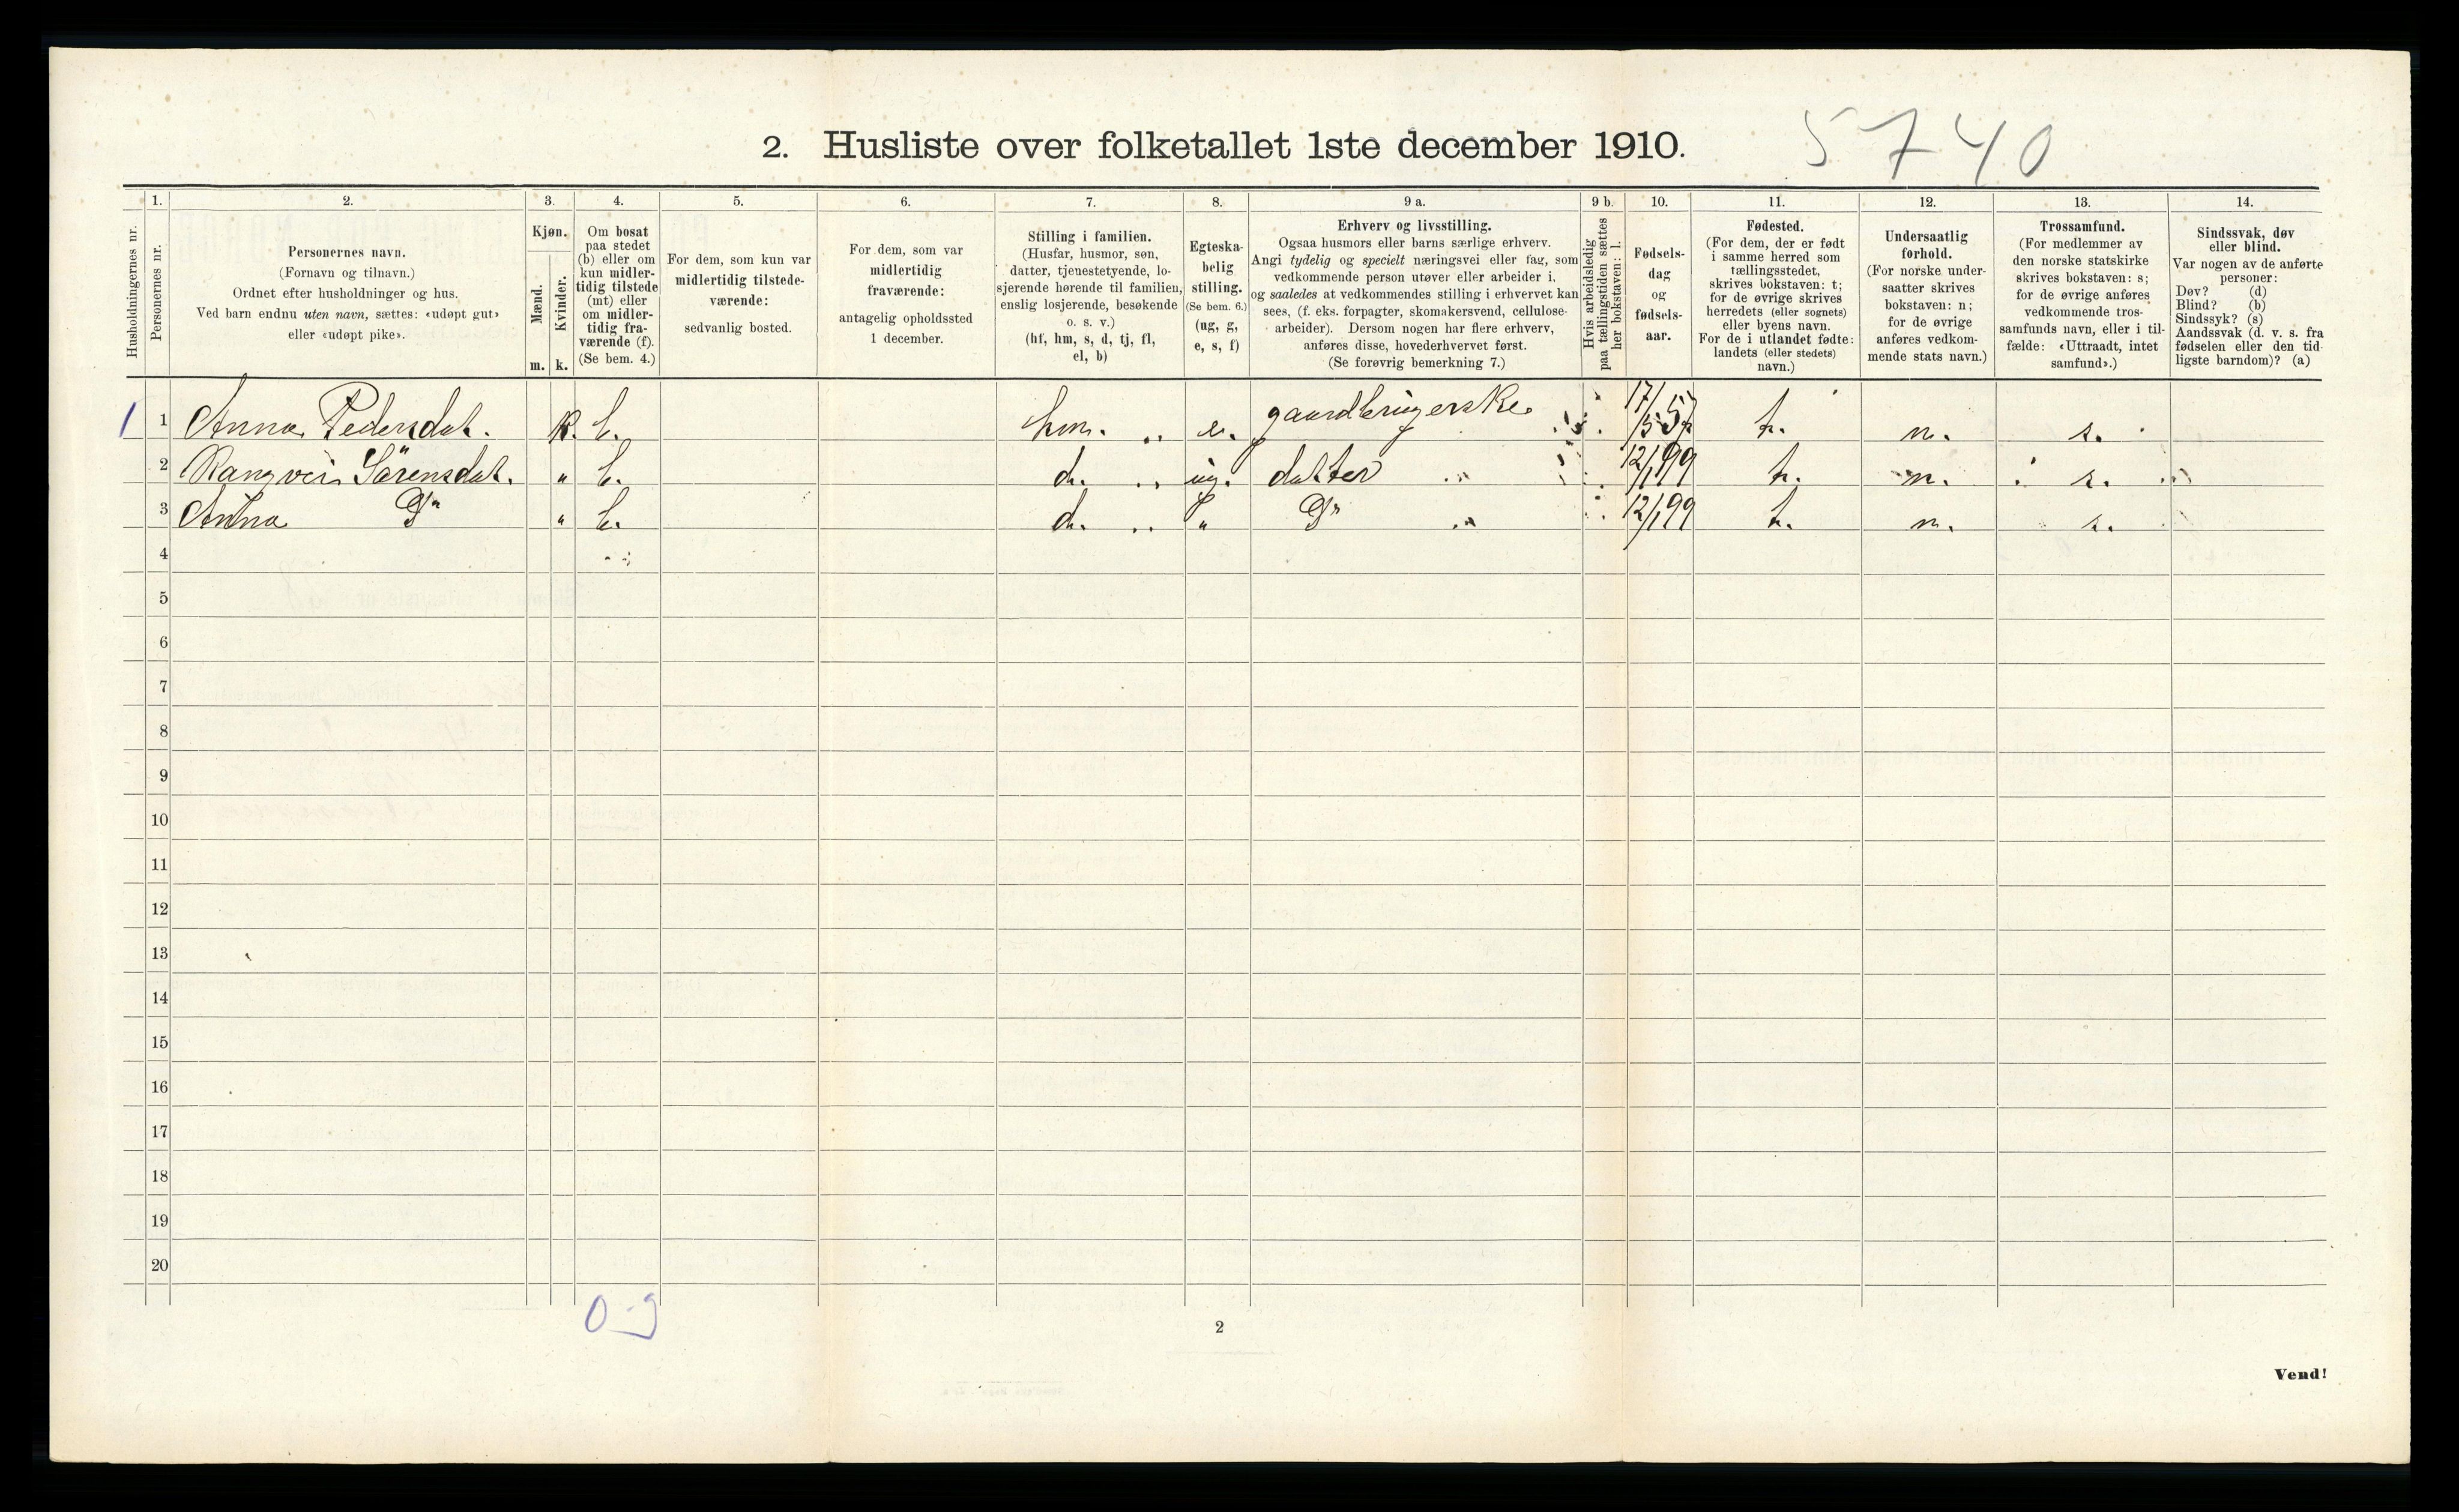 2. Husliste over folketallet 1ste december 1910.
5740
Husholdningernes nr.
1.
Personernes nr.
2.
Personernes navn.
(Fornavn og tilnavn.)
Ordnet efter husholdninger og hus.
Ved barn endnu uten navn, sættes: «udøpt gut»
eller «udøpt pike».
3.
Kjøn.
Mænd.
Kvinder.
m. k.
4.
Om bosat
paa stedet
(b) eller om
kun midler-
tidig tilstede
(mt) eller
om midler-
tidig fra-
værende (f).
(Se bem. 4.)
5.
For dem, som kun var
midlertidig tilstede-
værende:
sedvanlig bosted.
6.
For dem, som var
midlertidig
fraværende:
antagelig opholdssted
1 december.
7.
Stilling i familien.
(Husfar, husmor, søn,
datter, tjenestetyende, lo-
sjerende hørende til familien,
enslig losjerende, besøkende
o. s. v.)
(hf, hm, s, d, tj, fl,
el, b)
8.
Egteska-
belig
stilling.
(Se bem. 6.)
(ug, g,
e, s, f)
9 a.
Erhverv og livsstilling.
Ogsaa husmors eller barns særlige erhverv.
Angi tydelig og specielt næringsvei eller fag, som
vedkommende person utøver eller arbeider i,
og saaledes at vedkommendes stilling i erhvervet kan
sees, (f. eks. forpagter, skomakersvend, cellulose-
arbeider). Dersom nogen har flere erhverv,
anføres disse, hovederhvervet først.
(Se forøvrig bemerkning 7.)
9 b.
Hvis arbeidsledig
paa tællingstiden sættes
her bokstaven: l.
10.
Fødsels-
dag
og
fødsels-
aar.
11.
Fødested.
(For dem, der er født
i samme herred som
tællingsstedet,
skrives bokstaven: t;
for de øvrige skrives
herredets (eller sognets)
eller byens navn.
For de i utlandet fødte:
landets (eller stedets)
navn.)
12.
Undersaatlig
forhold.
(For norske under-
saatter skrives
bokstaven: n;
for de øvrige
anføres vedkom-
mende stats navn.)
13.
Trossamfund.
(For medlemmer av
den norske statskirke
skrives bokstaven: s;
for de øvrige anføres
vedkommende tros-
samfunds navn, eller i til-
fælde: «Uttraadt, intet
samfund».)
14.
Sindssvak, døv
eller blind.
Var nogen av de anførte
personer:
Døv? (d)
Blind? (b)
Sindssyk? (s)
Aandssvak (d. v. s. fra
fødselen eller den tid-
ligste barndom)? (a)
1 1 Anna Pedersdat. k. b. hm. e. gaardbrugerske 17/5 57 t. n. s.
2 Rangvei Sörensdat. " b. d. ug. datter 12/1 99 t. n. s.
3 Anna Do " b. d. " Do 12/1 99 t. n. s.
4
5
6
7
8
9
10
11
12
13
14
15
16
17
18
19
20
0-3
2
Vend!